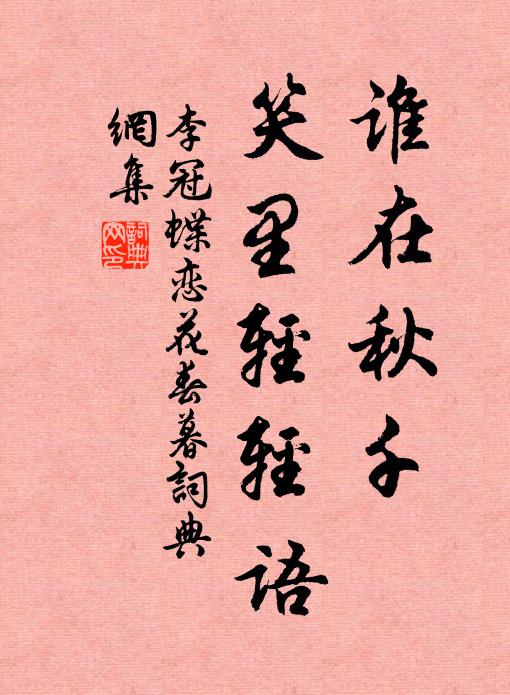 谁在秋千
笑里轻轻语
李冠蝶恋花春暮詞典
網集
詞典
网印